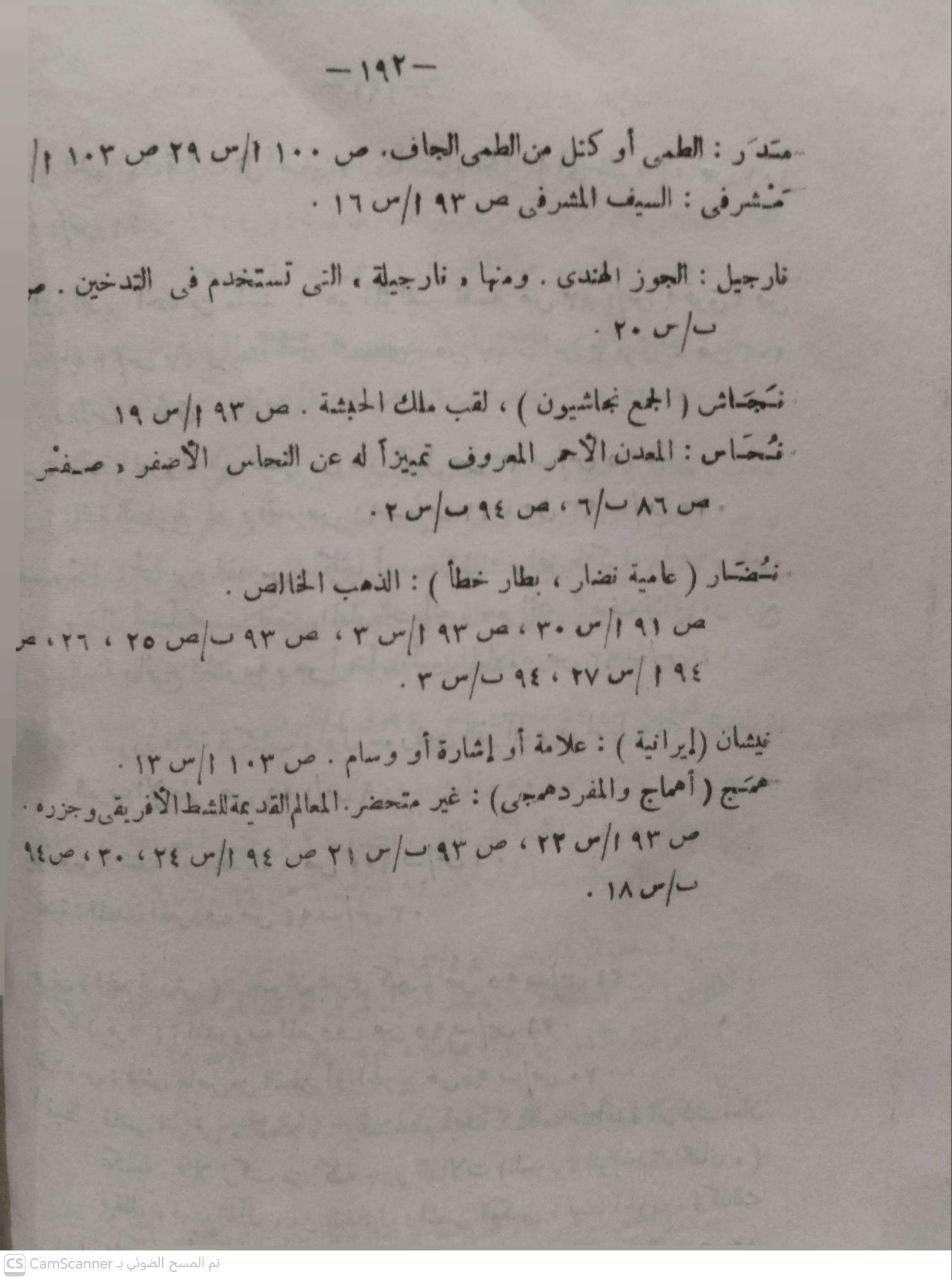 —١٩٢—
مَدَر : الطمى أو كتل من الطمى الجاف. ص ١٠٠ ا/س ٢٩ ص ١٠٣ ا/
مَشرفى : السيف المشرفى ص ٩٣ ا/س ١٦ .
نارجيل : الجوز الهندى . ومنها « نارجيلة » التى تستخدم فى التدخين . ص
ب/س ٢٠ .
نَجَاش ( الجمع نجاشيون ) ، لقب ملك الحبشة . ص ٩٣ ا/س ١٩
نُحَاس : المعدن الأحمر المعروف تمييزاً له عن النحاس الأصفر « صفْر
ص ٨٦ ب/٦ ، ص ٩٤ ب/س ٢ .
نُضَار ( عامية نضار ، بطار خطأ ) : الذهب الخالص .
ص ٩١ ا/س ٣٠ ، ص ٩٣ ا/س ٣ ، ص ٩٣ ب/ص ٢٥ ، ٢٦ ، ص
٩٤ ا/س ٢٧ ، ٩٤ ب/س ٣ .
نيشان (إيرانية ) : علامة أو إشارة أو وسام . ص ١٠٣ ا/س ١٣ .
همَج ( أهماج والمفرد همجى) : غير متحضر. المعالم القديمة للشط الأفريقى وجزره .
ص ٩٣ ا/س ٢٢ ، ص ٩٣ ب/س ٢١ ص ٩٤ ا/س ٢٤ ، ٣٠ ، ص ٩٤
ب/س ١٨ .
CS CamScanner تم المسح الضوئي بـ